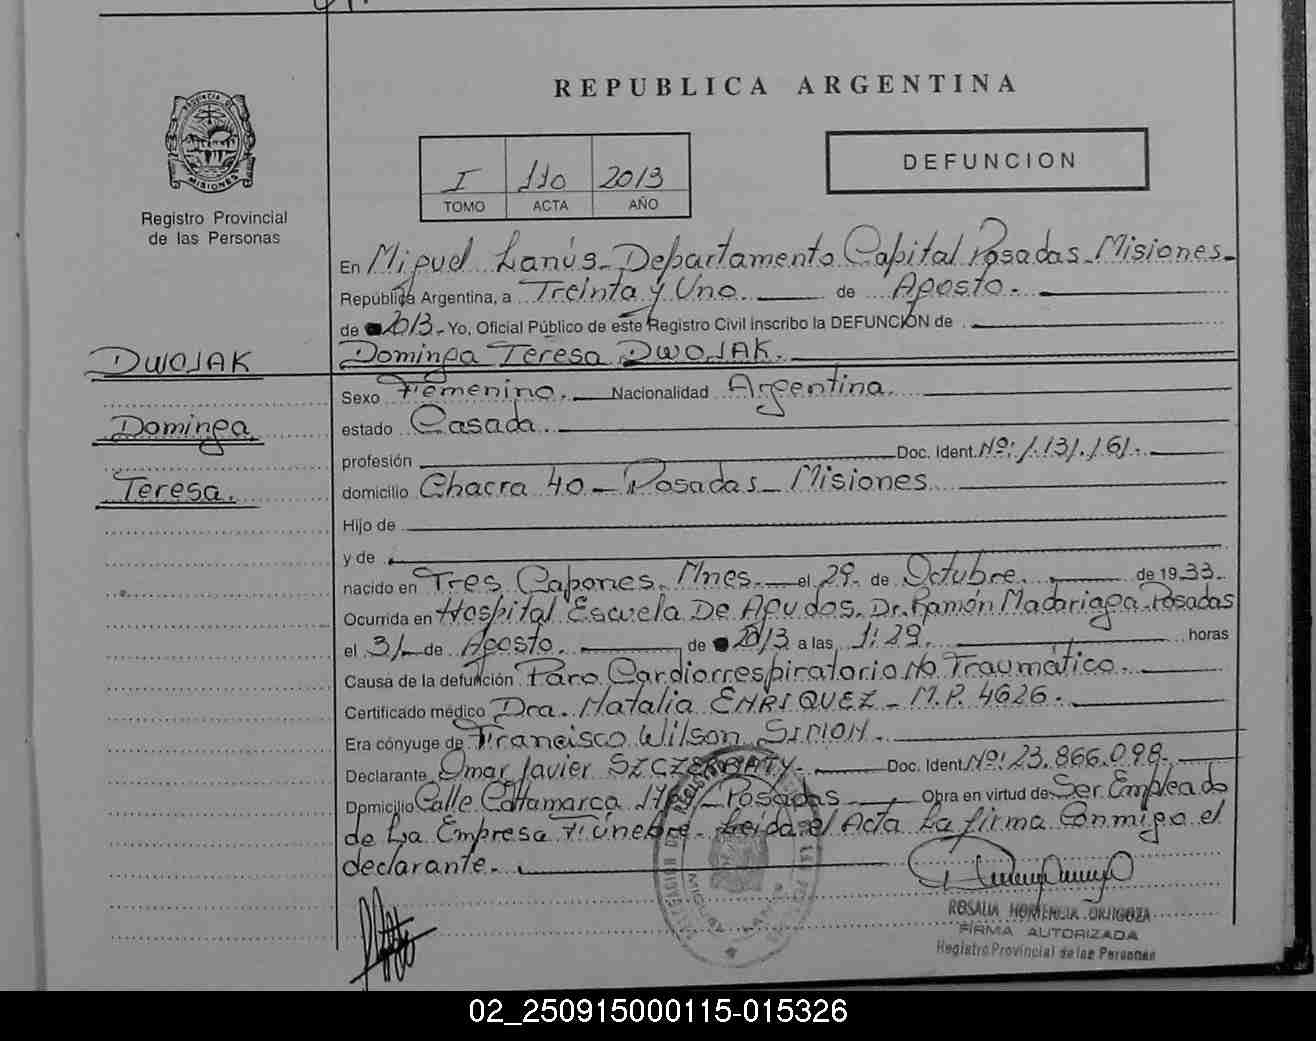 REPUBLICA ARGENTINA
PROVINCIA DE
MISIONES
Registro Provincial
de las Personas
I 110 2013
TOMO ACTA AÑO
DEFUNCION
En Miguel Lanús_ Departamento Capital Posadas_ Misiones_
República Argentina, a Treinta y Uno de Agosto.
de 2013_ Yo, Oficial Público de este Registro Civil inscribo la DEFUNCIÓN de
DWOJAK
Dominga Teresa DWOJAK.
Sexo Femenino. Nacionalidad Argentina.
Dominga
estado Casada.
profesión Doc. Ident. Nº: 1.131.161.
Teresa.
domicilio Chacra 40_ Posadas_ Misiones
Hijo de
y de
nacido en Tres Capones. Mnes. el 29. de Octubre. de 1933.
Ocurrida en Hospital Escuela De Agudos. Dr. Ramón Madariaga. Posadas
el 31 de Agosto. de 2013 a las 1:29. horas
Causa de la defunción Paro Cardiorrespiratorio No Traumático.
Certificado médico Dra. Natalia ENRIQUEZ _ M.P. 4626.
Era cónyuge de Francisco Wilson SIMON.
Declarante Omar Javier SZCZERBATY. Doc. Ident. Nº: 23.866.098.
Domicilio Calle Catamarca Posadas Obra en virtud de Ser Empleado
de La Empresa Fúnebre. Leída el Acta La firma Conmigo el
declarante.
ROSALIA HORTENCIA ORTIGOZA
FIRMA AUTORIZADA
Registro Provincial de las Personas
02_250915000115-015326